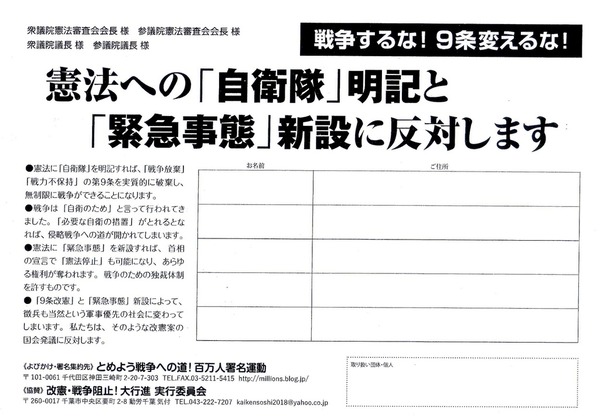 衆議院憲法審査会会長 様　参議院憲法審査会会長 様
衆議院議長 様　参議院議長 様
戦争するな！9条変えるな！
憲法への「自衛隊」明記と
「緊急事態」新設に反対します
●憲法に「自衛隊」を明記すれば、「戦争放棄」
「戦力不保持」の第9条を実質的に破棄し、
無制限に戦争ができることになります。
●戦争は「自衛のため」と言って行われてき
ました。「必要な自衛の措置」がとれるとな
れば、侵略戦争への道が開かれてしまいます。
●憲法に「緊急事態」を新設すれば、首相
の宣言で「憲法停止」も可能になり、あらゆ
る権利が奪われます。戦争のための独裁体制
を許すものです。
●「9条改憲」と「緊急事態」新設によって、
徴兵も当然という軍事優先の社会に変わって
しまいます。私たちは、そのような改憲案の
国会発議に反対します。
お名前
ご住所
《よびかけ・署名集約先》とめよう戦争への道！百万人署名運動
〒101-0061 千代田区神田三崎町2-20-7-303　TEL.FAX.03-5211-5415　http://millions.blog.jp/
《協賛》改憲・戦争阻止！大行進 実行委員会
〒260-0017 千葉市中央区要町2-8 動労千葉 気付　TEL.043-222-7207　kaikensoshi2018@yahoo.co.jp
取り扱い団体・個人